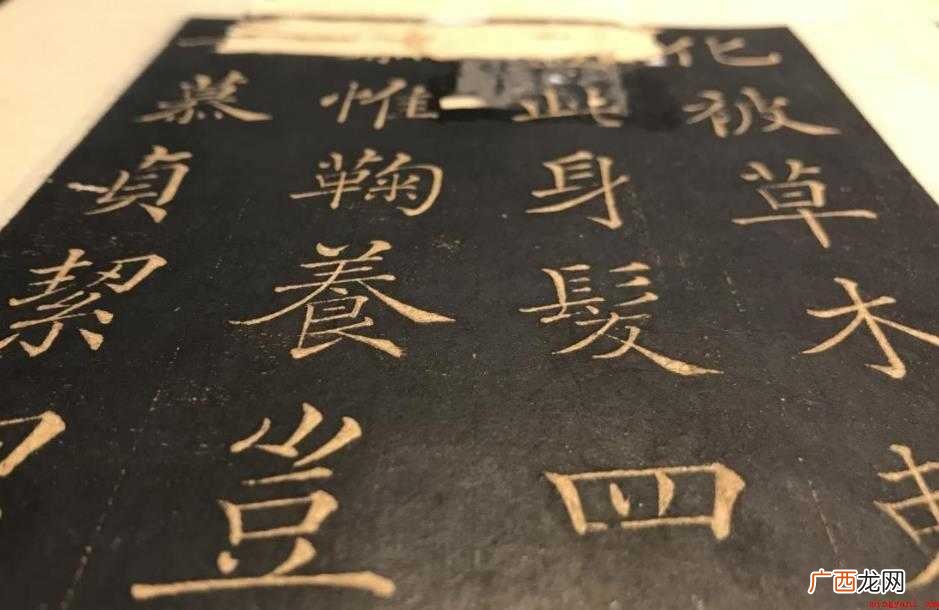 化被草木
此身髮四
惟鞠養豈
慕貞絜
广西龙网